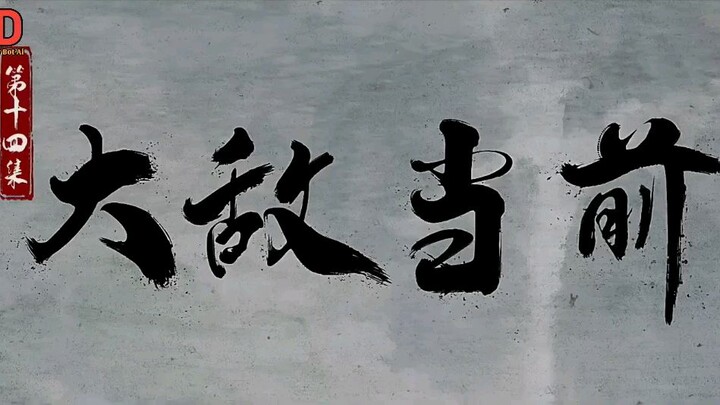 D
Bot Ai
第十四集
大敌当前